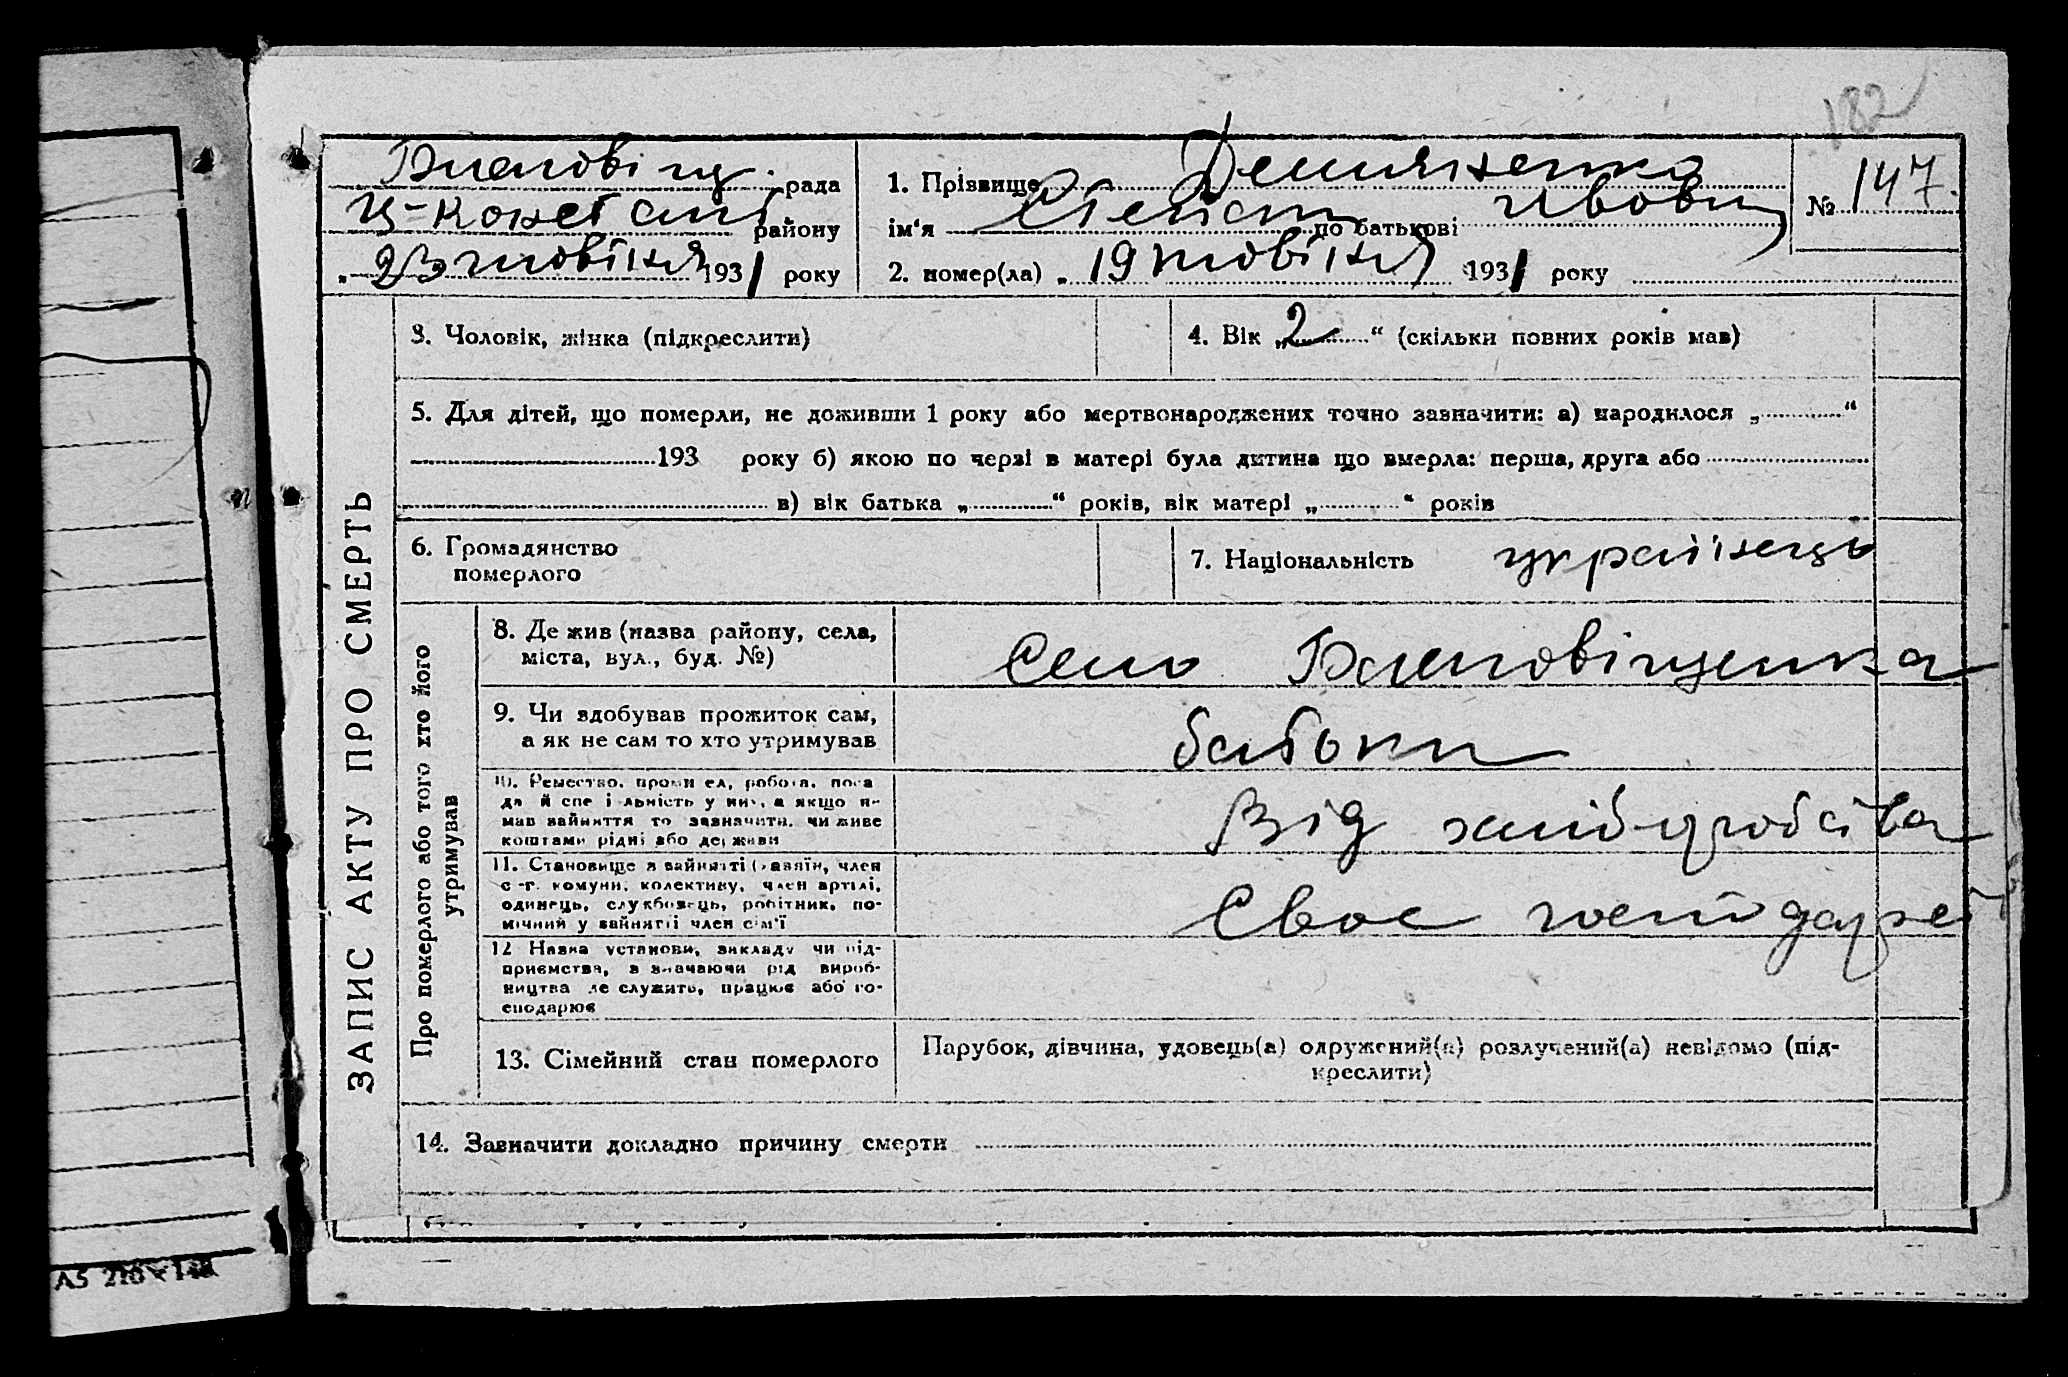 182
Благовіщ. рада
Ц-Констант району
„23" жовтня 1931 року
1. Прізвище Демяненко
ім'я Степан по батькові Івович
№ 147.
2. помер(ла) „19 жовтня 1931 року
ЗАПИС АКТУ ПРО СМЕРТЬ
3. Чоловік, жінка (підкреслити)
4. Вік „2" (скільки повних років мав)
5. Для дітей, що померли, не доживши 1 року або мертвонароджених точно зазначити: а) народилося „ "
193 року б) якою по черзі в матері була дитина що вмерла: перша, друга або
в) вік батька „ " років, вік матері „ " років
6. Громадянство
померлого
7. Національність українець
Про померлого або того хто його
утримував
8. Де жив (назва району, села,
міста, вул., буд. №)
Село Благовіщенка
9. Чи здобував прожиток сам,
а як не сам то хто утримував
батьки
10. Ремество, промисел, робота, поса
да й спеціяльність у них, а якщо н-
мав зайняття то зазначити, чи живе
коштами рідні або держави
Від хліборобства
11. Становище в зайнятті (хазяїн, член
с.-г. комуни, колективу, член артілі,
одинець, службовець, робітник, по-
мічний у зайнятті член сім'ї
Своє господарст
12 Назва установи, закладу чи під-
приємства, зазначаючи рід вироб-
ництва де служить, працює або го-
сподарює
13. Сімейний стан померлого
Парубок, дівчина, удовець(а) одружений(а) розлучений(а) невідомо (під-
креслити)
14. Зазначити докладно причину смерти
А5 210 × 148